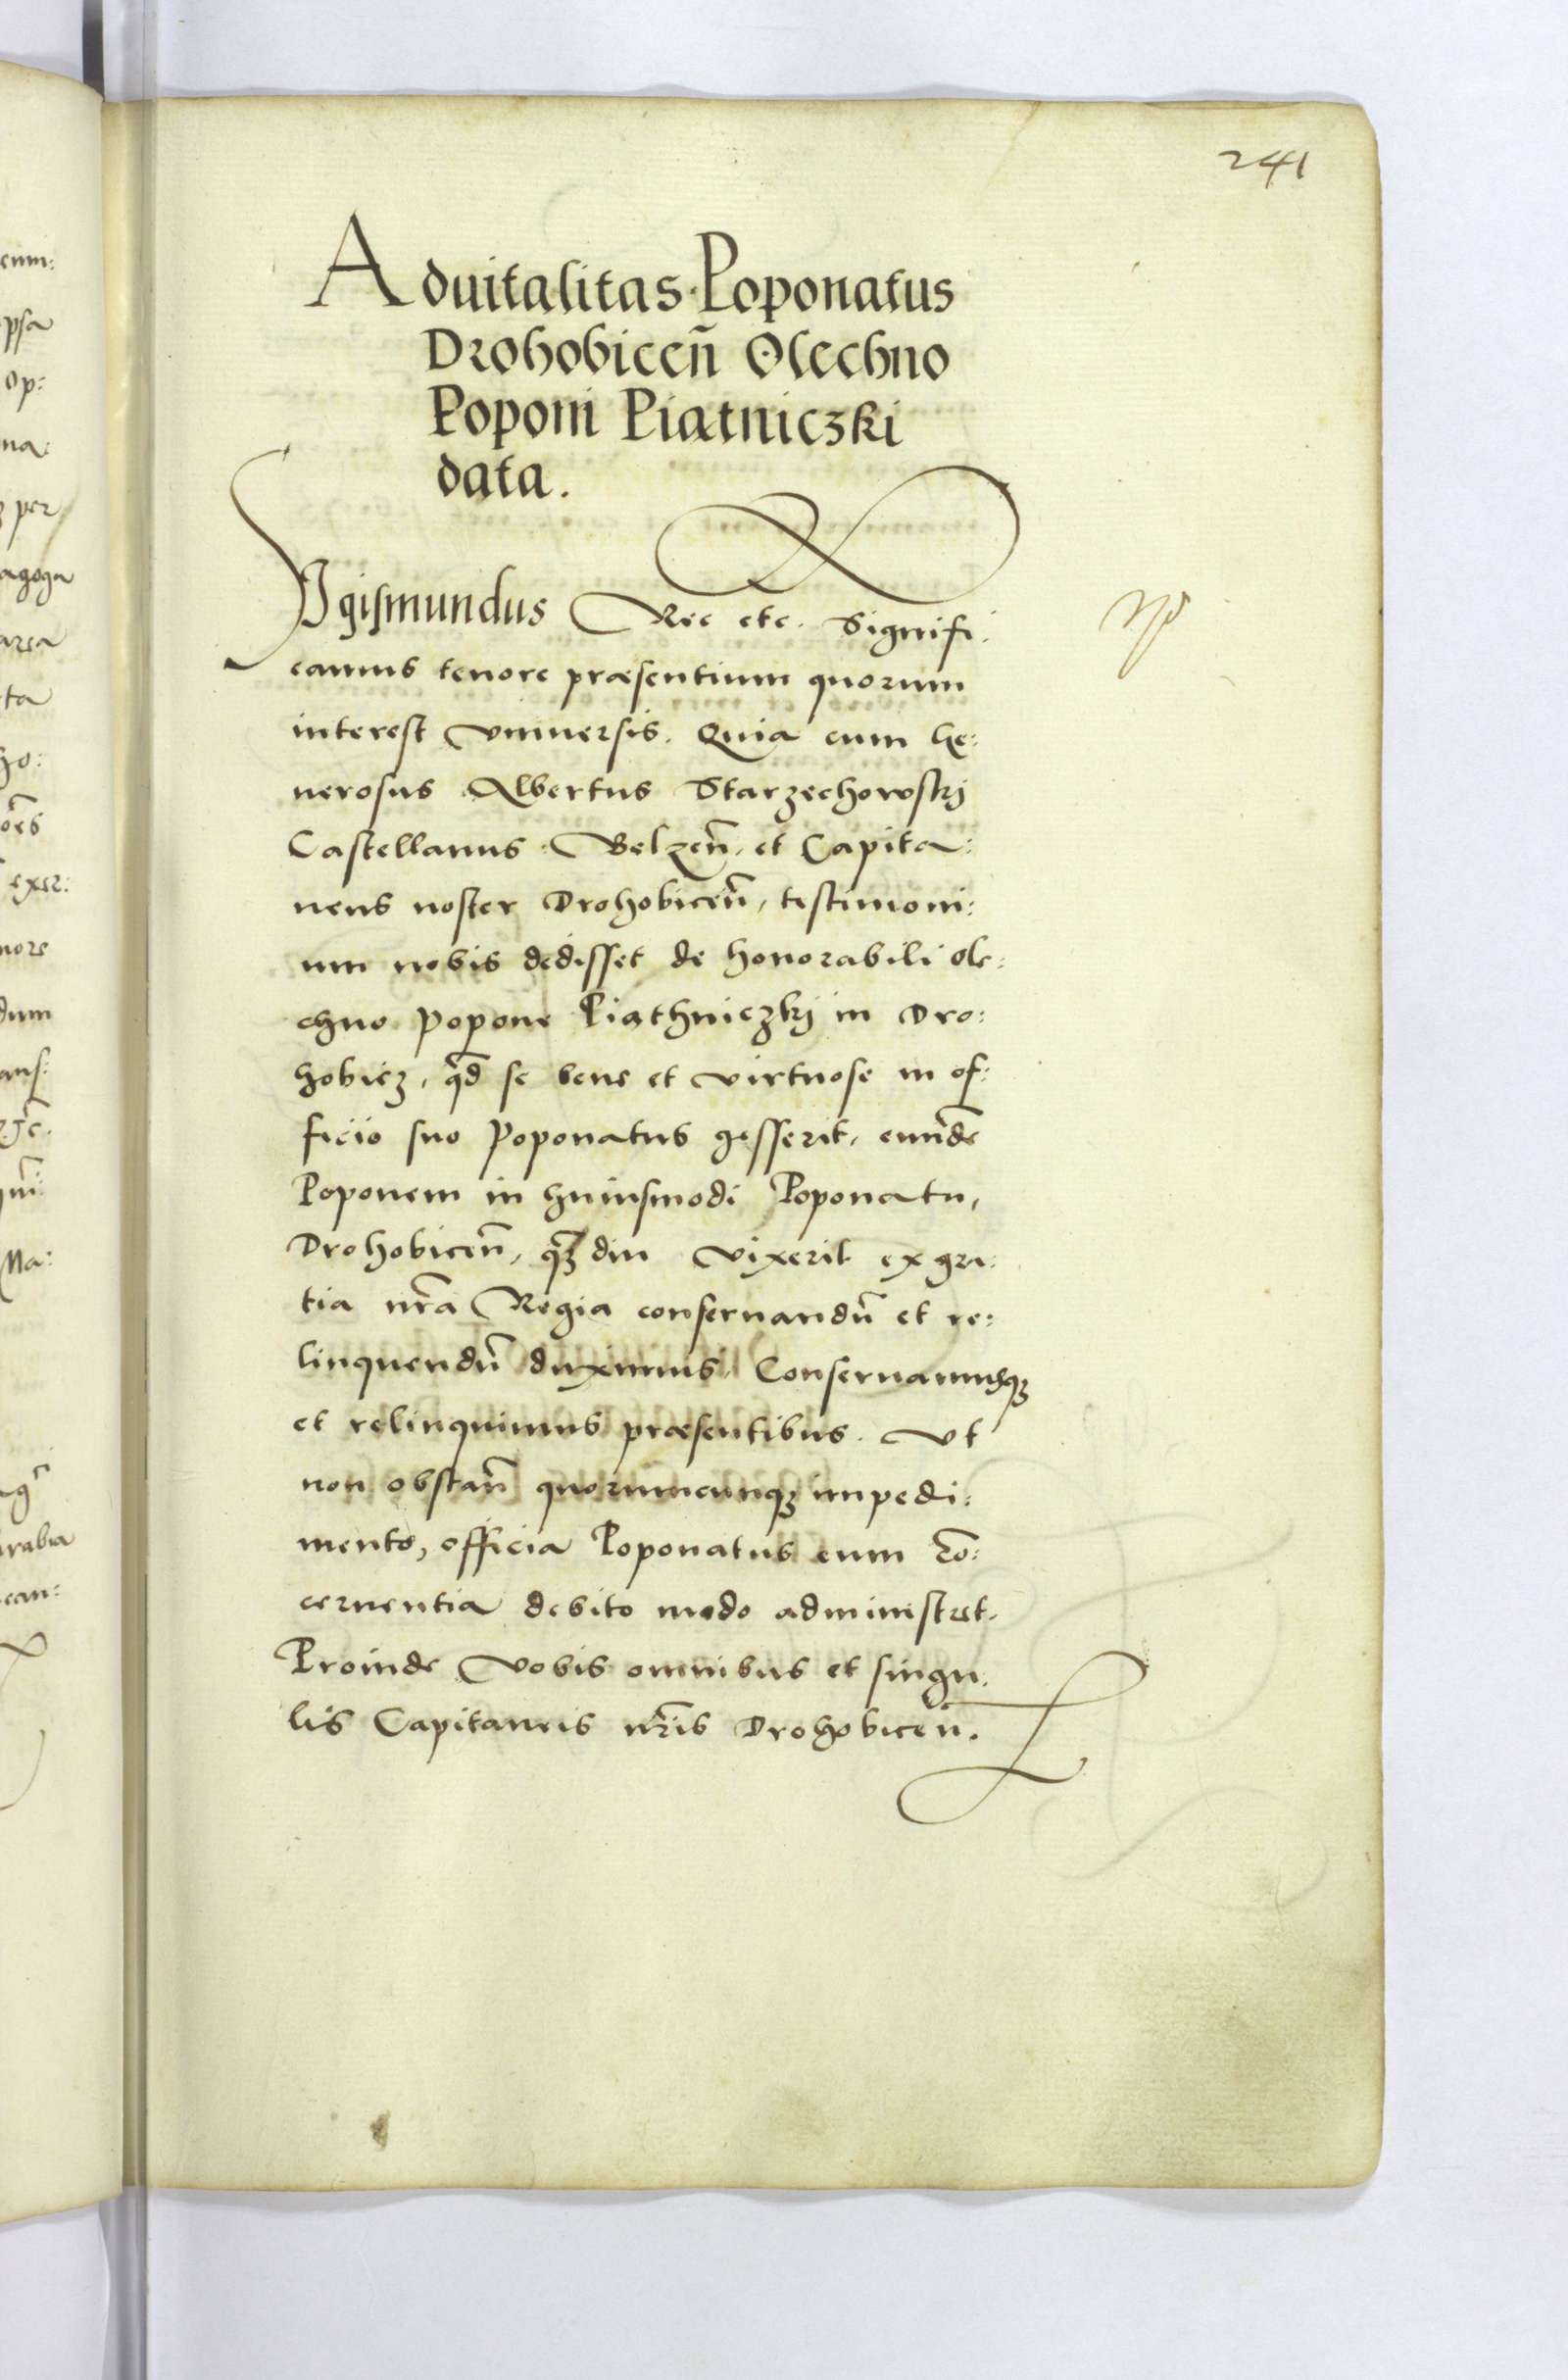 241
Aduitalitas Poponatus
Drohobiceñ Olechno
Poponi Piatniczki
data.
Sigismundus Rex etc. Signifi:
camus tenore præsentium quorum
interest vniuersis. Quia cum Ge:
nerosus Albertus Starzechowskij
Castellanus Belzeñ. et Capita:
neus noster Drohobiceñ, testimoni:
um nobis dedisset de honorabili Ole:
chno Popone Piathniczkij in Dro:
hobicz, qđ se bene et virtuose in of:
ficio suo Poponatus gesserit, eunde
Poponem in huiusmodi Poponatu,
Drohobiceñ, q̃ʒ diu vixerit ex gra:
tia nr̃a Regia conseruandũ et re:
linquendũ duximus. Conseruamusqʒ
et relinquimus præsentibus. Vt
non obstañ quorumcunqʒ impedi:
mento, officia Poponatus eum cõ:
cernentia debito modo administret.
Proinde vobis omnibus et singu:
lis Capitaneis nr̃is Drohobiceñ.
cum:
psa
op:
na:
per
agoga
area
ta
ho:
oẽs
exer:
more
dum
Ma:
rabia
can: